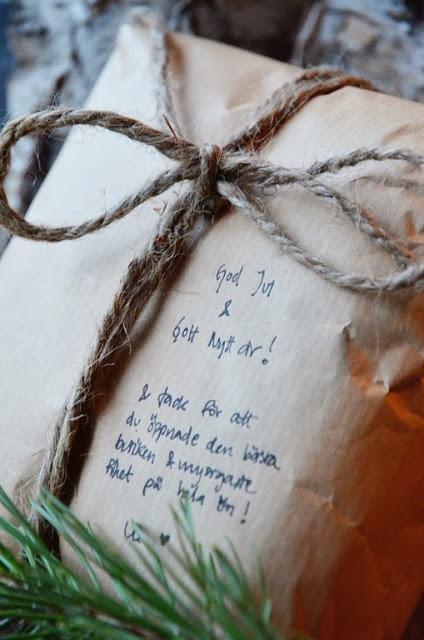 God Jul
&
Gott Nytt år!
& tack för att
du öppnade den bästa
butiken & mysigaste
fiket på hela ön!
♥